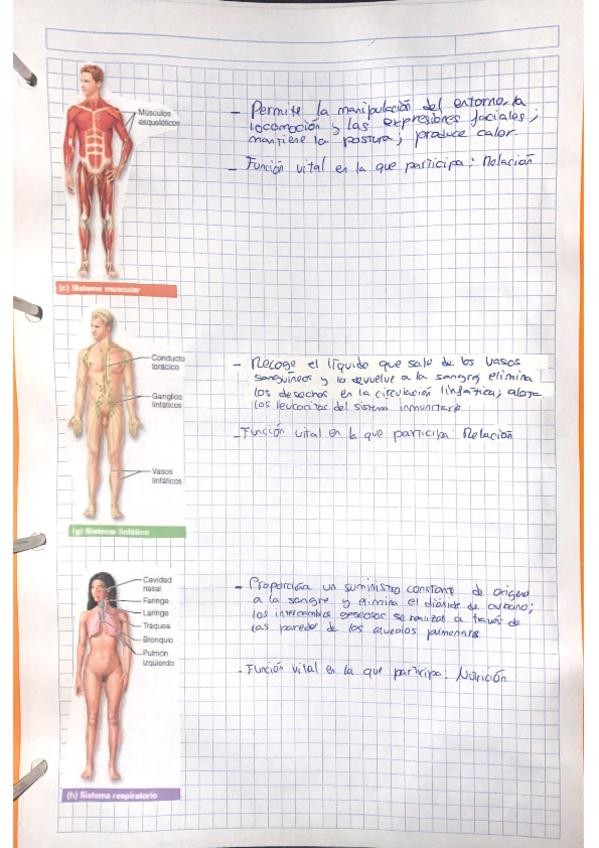 Músculos
esqueléticos
- Permite la manipulación del entorno, la
locomoción y las expresiones faciales;
mantiene la postura; produce calor.
- Función vital en la que participa: Relación
(c) Sistema muscular
Conducto
torácico
Ganglios
linfáticos
Vasos
linfáticos
- Recoge el líquido que sale de los vasos
sanguíneos y lo devuelve a la sangre; elimina
los desechos en la circulación linfática; aloja
los leucocitos del sistema inmunitario
- Función vital en la que participa: Relación
(g) Sistema linfático
Cavidad
nasal
Faringe
Laringe
Tráquea
Bronquio
Pulmón
izquierdo
- Proporciona un suministro constante de oxígeno
a la sangre y elimina el dióxido de carbono;
los intercambios gaseosos se realizan a través de
las paredes de los alveolos pulmonares
- Función vital en la que participa: Nutrición
(h) Sistema respiratorio